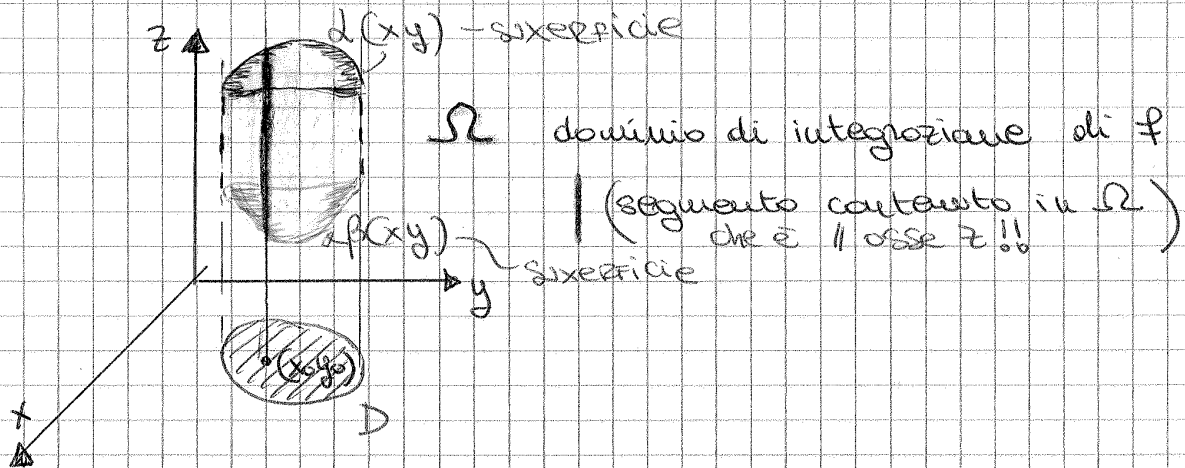 z
α(xy) - superficie
Ω dominio di integrazione di f
(segmento contenuto in Ω)
che è // asse z!!
β(xy)
superficie
y
(x₀y₀)
x
D